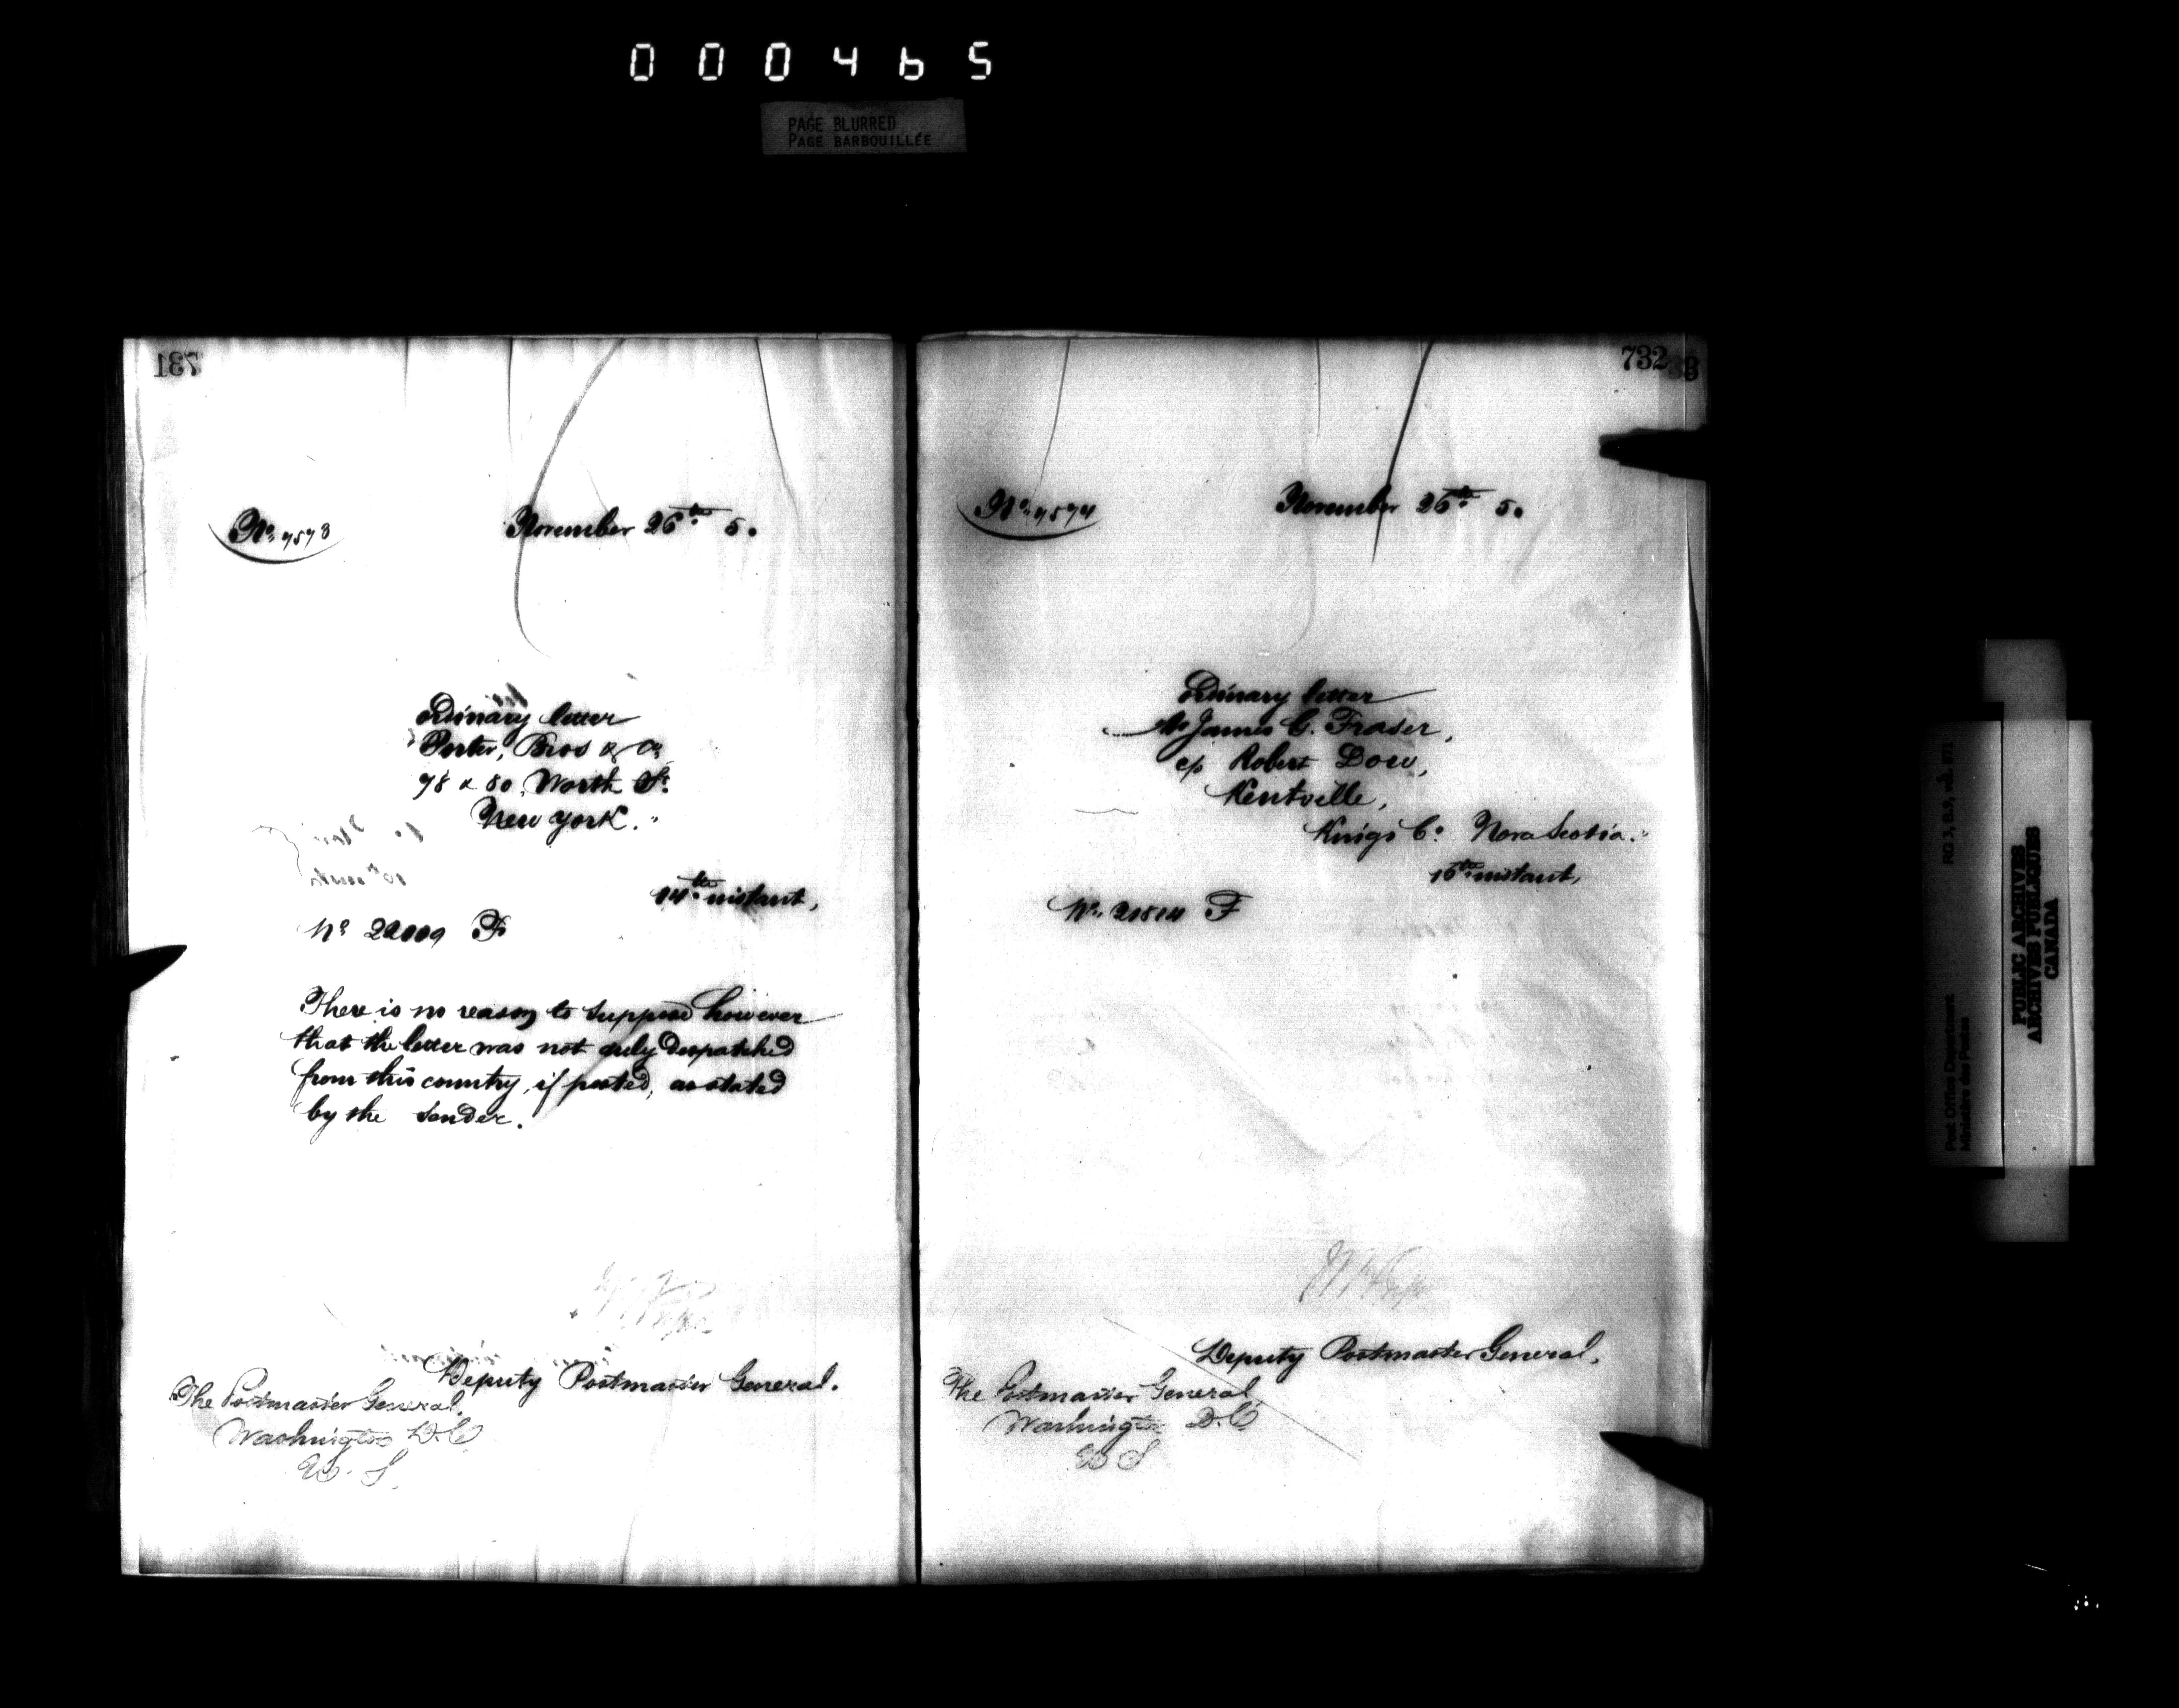 000465
PAGE BLURRED
PAGE BARBOUILLÉE
731
No. 7573
November 26th 5.
Ordinary letter
Porter, Bros & Co
78 & 80, Worth St.
New York."
14th instant,
No 22009 F
There is no reason to suppose however
that the letter was not duly despatched
from this country, if posted, as stated
by the sender.
Deputy Postmaster General.
The Postmaster General,
Washington D.C
U. S.
732
No. 7574
November 26th 5.
Ordinary letter
Mr James C. Fraser,
c/o Robert Dow,
Kentville,
Kings Co. Nova Scotia."
16th instant,
No. 21814 F
Deputy Postmaster General.
The Postmaster General
Washington D.C
U S
RG 3, B.9, vol. 871
Post Office Department
Ministère des Postes
PUBLIC ARCHIVES
ARCHIVES PUBLIQUES
CANADA